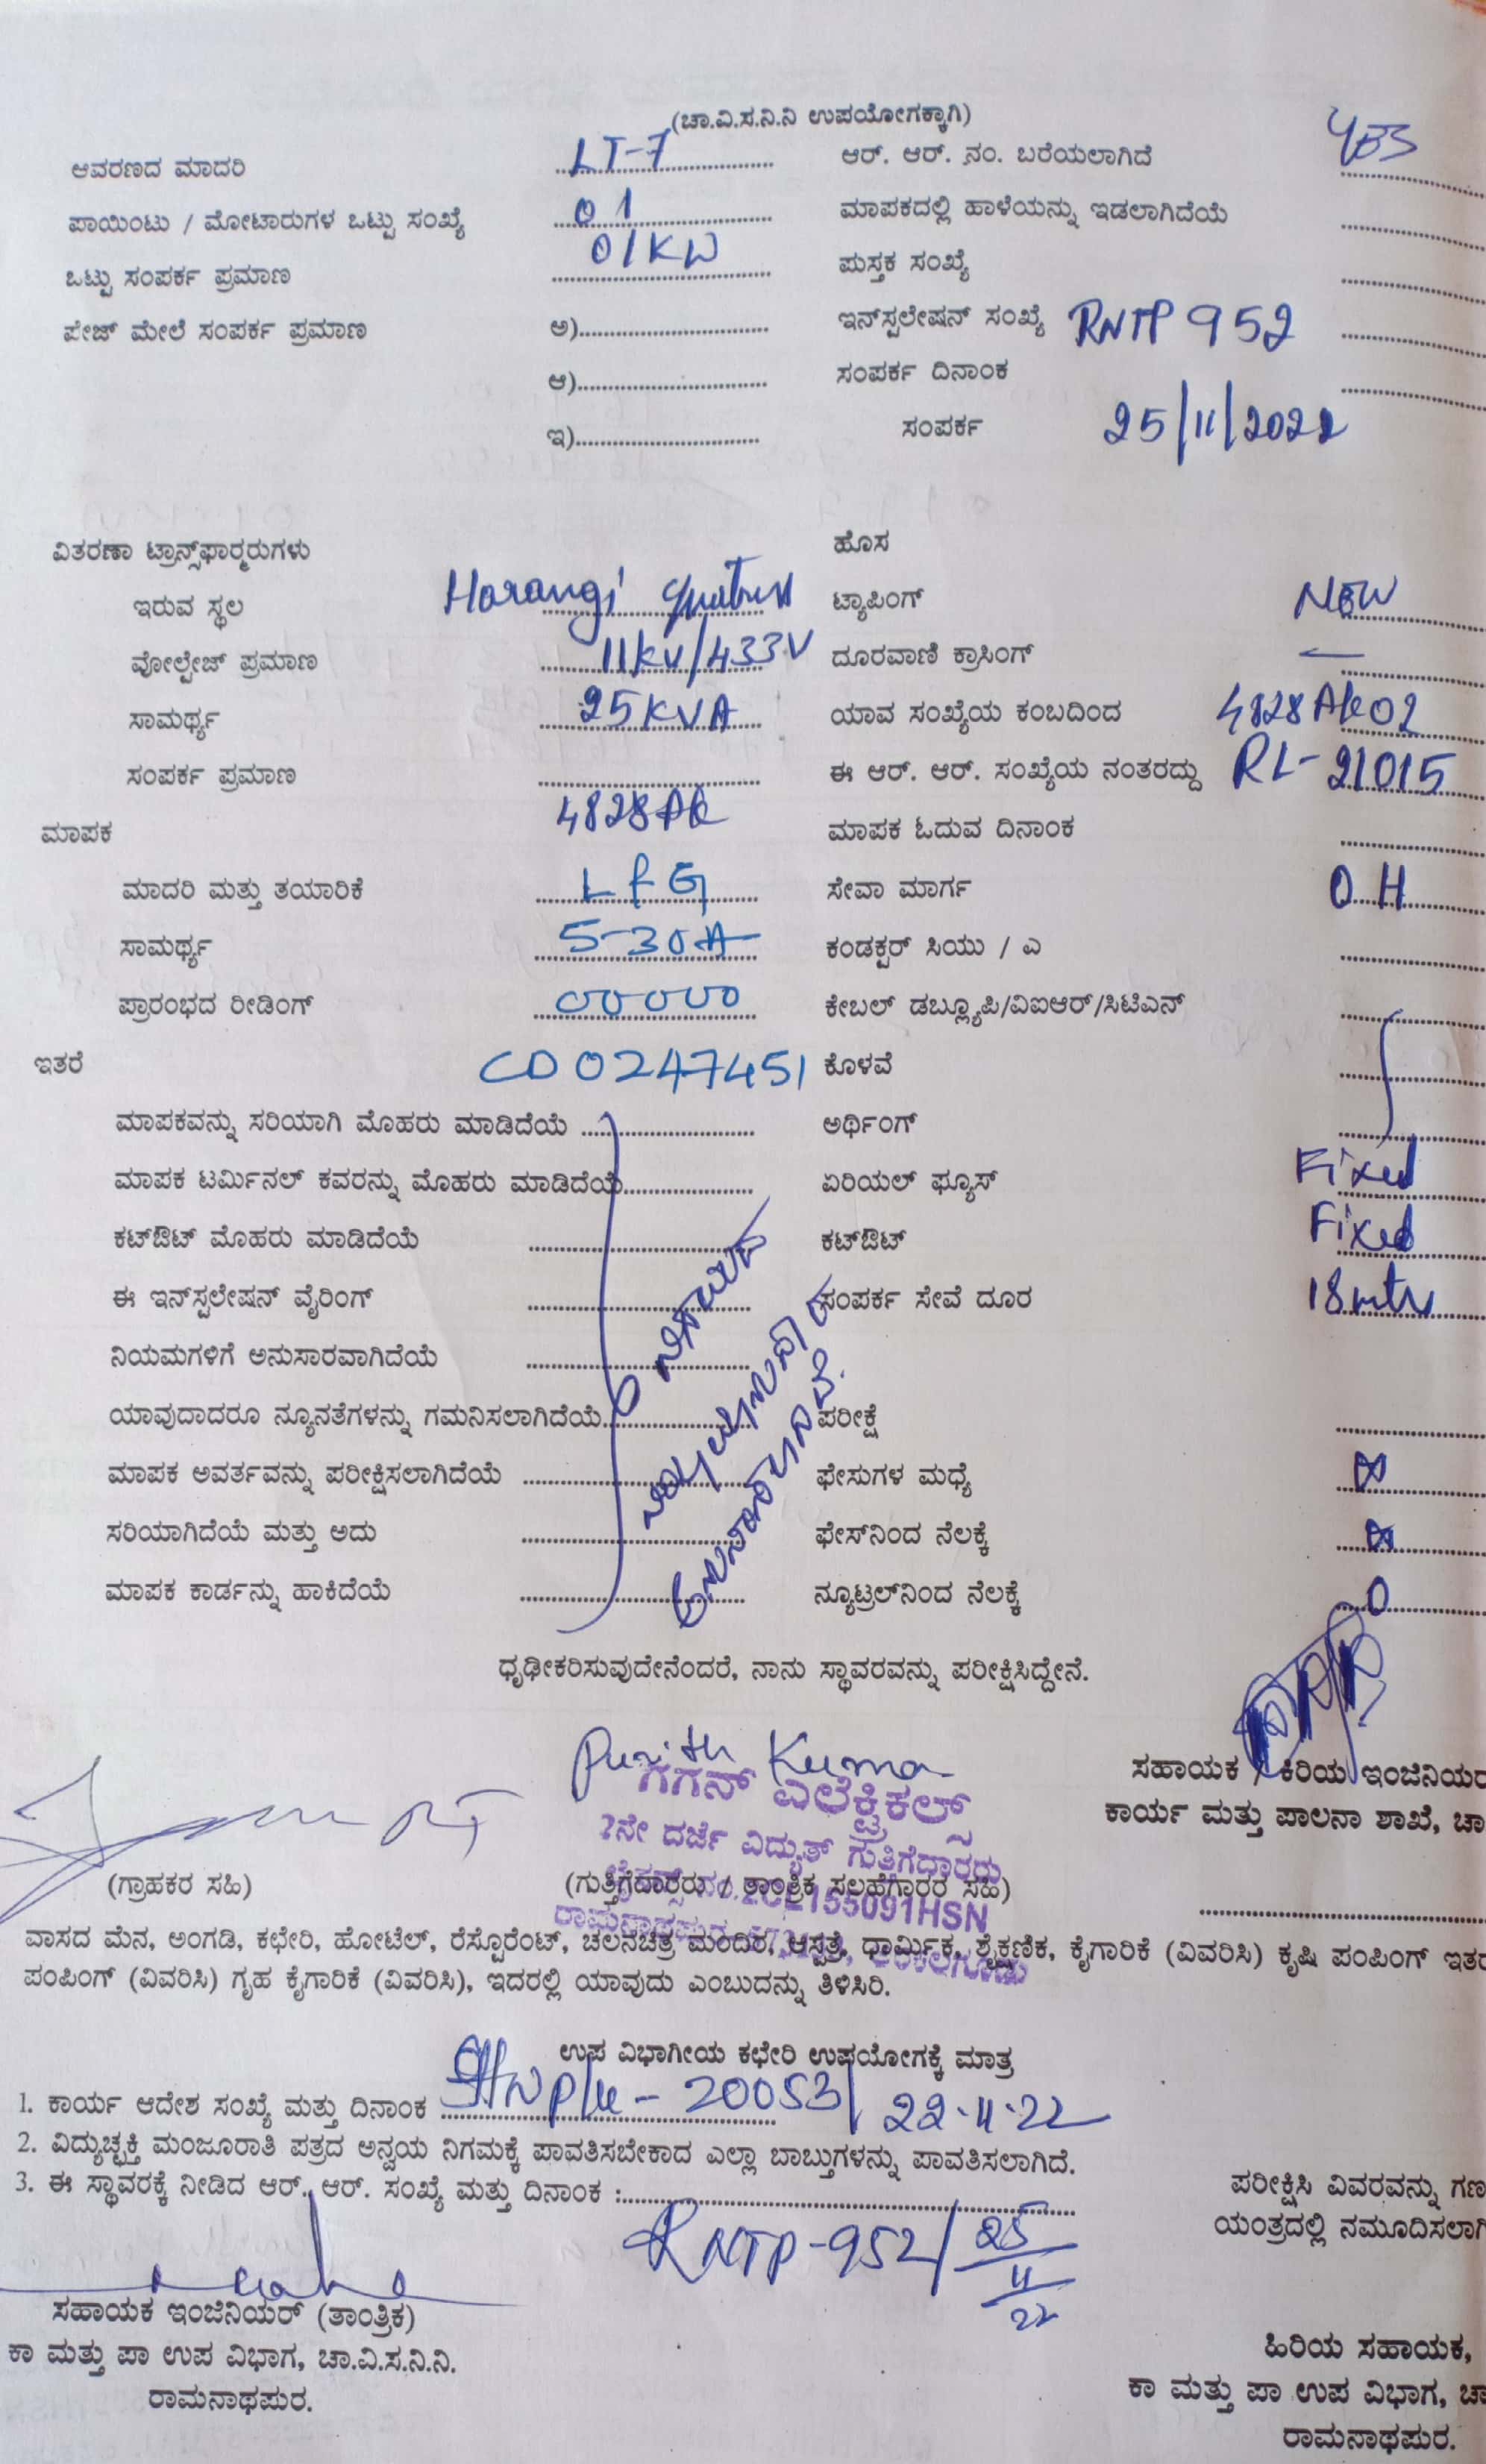 (ಚಾ.ವಿ.ಸ.ನಿ.ನಿ ಉಪಯೋಗಕ್ಕಾಗಿ)
ಆವರಣದ ಮಾದರಿ LT-7 ಆರ್. ಆರ್. ನಂ. ಬರೆಯಲಾಗಿದೆ
ಪಾಯಿಂಟು / ಮೋಟಾರುಗಳ ಒಟ್ಟು ಸಂಖ್ಯೆ 01 ಮಾಪಕದಲ್ಲಿ ಹಾಳೆಯನ್ನು ಇಡಲಾಗಿದೆಯೆ
ಒಟ್ಟು ಸಂಪರ್ಕ ಪ್ರಮಾಣ 01KW ಪುಸ್ತಕ ಸಂಖ್ಯೆ
ಪೇಜ್ ಮೇಲೆ ಸಂಪರ್ಕ ಪ್ರಮಾಣ ಅ) ಇನ್‌ಸ್ಟಲೇಷನ್ ಸಂಖ್ಯೆ RNTP 952
ಆ) ಸಂಪರ್ಕ ದಿನಾಂಕ
ಇ) ಸಂಪರ್ಕ 25/11/2022
ವಿತರಣಾ ಟ್ರಾನ್ಸ್‌ಫಾರ್‍ಮರುಗಳು ಹೊಸ
ಇರುವ ಸ್ಥಲ Harangi ಟ್ಯಾಪಿಂಗ್ NEW
ವೋಲ್ಟೇಜ್ ಪ್ರಮಾಣ 11KV/433V ದೂರವಾಣಿ ಕ್ರಾಸಿಂಗ್ —
ಸಾಮರ್ಥ್ಯ 25KVA ಯಾವ ಸಂಖ್ಯೆಯ ಕಂಬದಿಂದ
ಸಂಪರ್ಕ ಪ್ರಮಾಣ ಈ ಆರ್. ಆರ್. ಸಂಖ್ಯೆಯ ನಂತರದ್ದು RL-21015
ಮಾಪಕ ಮಾಪಕ ಓದುವ ದಿನಾಂಕ
ಮಾದರಿ ಮತ್ತು ತಯಾರಿಕೆ L&G ಸೇವಾ ಮಾರ್ಗ O H
ಸಾಮರ್ಥ್ಯ 5-30A ಕಂಡಕ್ಟರ್ ಸಿಯು / ಎ
ಪ್ರಾರಂಭದ ರೀಡಿಂಗ್ 00000 ಕೇಬಲ್ ಡಬ್ಲ್ಯೂಪಿ/ವಿಐಆರ್/ಸಿಟಿಎನ್
ಇತರೆ CD0247451 ಕೊಳವೆ
ಮಾಪಕವನ್ನು ಸರಿಯಾಗಿ ಮೊಹರು ಮಾಡಿದೆಯೆ ಅರ್ಥಿಂಗ್
ಮಾಪಕ ಟರ್ಮಿನಲ್ ಕವರನ್ನು ಮೊಹರು ಮಾಡಿದೆಯೆ ಏರಿಯಲ್ ಫ್ಯೂಸ್ Fixed
ಕಟ್‌ಔಟ್ ಮೊಹರು ಮಾಡಿದೆಯೆ ಕಟ್‌ಔಟ್ Fixed
ಈ ಇನ್‌ಸ್ಟಲೇಷನ್ ವೈರಿಂಗ್ ಸಂಪರ್ಕ ಸೇವೆ ದೂರ 18mtr
ನಿಯಮಗಳಿಗೆ ಅನುಸಾರವಾಗಿದೆಯೆ
ಯಾವುದಾದರೂ ನ್ಯೂನತೆಗಳನ್ನು ಗಮನಿಸಲಾಗಿದೆಯೆ ಪರೀಕ್ಷೆ
ಮಾಪಕ ಅವರ್ತವನ್ನು ಪರೀಕ್ಷಿಸಲಾಗಿದೆಯೆ ಫೇಸುಗಳ ಮಧ್ಯೆ
ಸರಿಯಾಗಿದೆಯೆ ಮತ್ತು ಅದು ಫೇಸ್‌ನಿಂದ ನೆಲಕ್ಕೆ
ಮಾಪಕ ಕಾರ್ಡನ್ನು ಹಾಕಿದೆಯೆ ನ್ಯೂಟ್ರಲ್‌ನಿಂದ ನೆಲಕ್ಕೆ 0
ಧೃಢೀಕರಿಸುವುದೇನೆಂದರೆ, ನಾನು ಸ್ಥಾವರವನ್ನು ಪರೀಕ್ಷಿಸಿದ್ದೇನೆ.
ಸಹಾಯಕ / ಕಿರಿಯ ಇಂಜಿನಿಯರ
ಗಗನ್ ಎಲೆಕ್ಟ್ರಿಕಲ್ಸ್
ಕಾರ್ಯ ಮತ್ತು ಪಾಲನಾ ಶಾಖೆ, ಚಾ
2ನೇ ದರ್ಜೆ ವಿದ್ಯುತ್ ಗುತ್ತಿಗೆದಾರರು
(ಗ್ರಾಹಕರ ಸಹಿ) (ಗುತ್ತಿಗೆದಾರರು / ತಾಂತ್ರಿಕ ಸಲಹೆಗಾರರ ಸಹಿ)
ವಾಸದ ಮೆನ, ಅಂಗಡಿ, ಕಛೇರಿ, ಹೋಟೆಲ್, ರೆಸ್ಟೋರೆಂಟ್, ಚಲನಚಿತ್ರ ಮಂದಿರ, ಆಸ್ಪತ್ರೆ, ಧಾರ್ಮಿಕ, ಶೈಕ್ಷಣಿಕ, ಕೈಗಾರಿಕೆ (ವಿವರಿಸಿ) ಕೃಷಿ ಪಂಪಿಂಗ್ ಇತರ
ಪಂಪಿಂಗ್ (ವಿವರಿಸಿ) ಗೃಹ ಕೈಗಾರಿಕೆ (ವಿವರಿಸಿ), ಇದರಲ್ಲಿ ಯಾವುದು ಎಂಬುದನ್ನು ತಿಳಿಸಿರಿ.
ಉಪ ವಿಭಾಗೀಯ ಕಛೇರಿ ಉಪಯೋಗಕ್ಕೆ ಮಾತ್ರ
1. ಕಾರ್ಯ ಆದೇಶ ಸಂಖ್ಯೆ ಮತ್ತು ದಿನಾಂಕ 20053/ 22-11-22
2. ವಿದ್ಯುಚ್ಛಕ್ತಿ ಮಂಜೂರಾತಿ ಪತ್ರದ ಅನ್ವಯ ನಿಗಮಕ್ಕೆ ಪಾವತಿಸಬೇಕಾದ ಎಲ್ಲಾ ಬಾಬ್ತುಗಳನ್ನು ಪಾವತಿಸಲಾಗಿದೆ.
3. ಈ ಸ್ಥಾವರಕ್ಕೆ ನೀಡಿದ ಆರ್. ಆರ್. ಸಂಖ್ಯೆ ಮತ್ತು ದಿನಾಂಕ :
ಪರೀಕ್ಷಿಸಿ ವಿವರವನ್ನು ಗಣ
ಯಂತ್ರದಲ್ಲಿ ನಮೂದಿಸಲಾಗಿ
RNTP-952/ 25/11/22
ಸಹಾಯಕ ಇಂಜಿನಿಯರ್ (ತಾಂತ್ರಿಕ)
ಕಾ ಮತ್ತು ಪಾ ಉಪ ವಿಭಾಗ, ಚಾ.ವಿ.ಸ.ನಿ.ನಿ.
ರಾಮನಾಥಪುರ.
ಹಿರಿಯ ಸಹಾಯಕ,
ಕಾ ಮತ್ತು ಪಾ ಉಪ ವಿಭಾಗ, ಚಾ
ರಾಮನಾಥಪುರ.